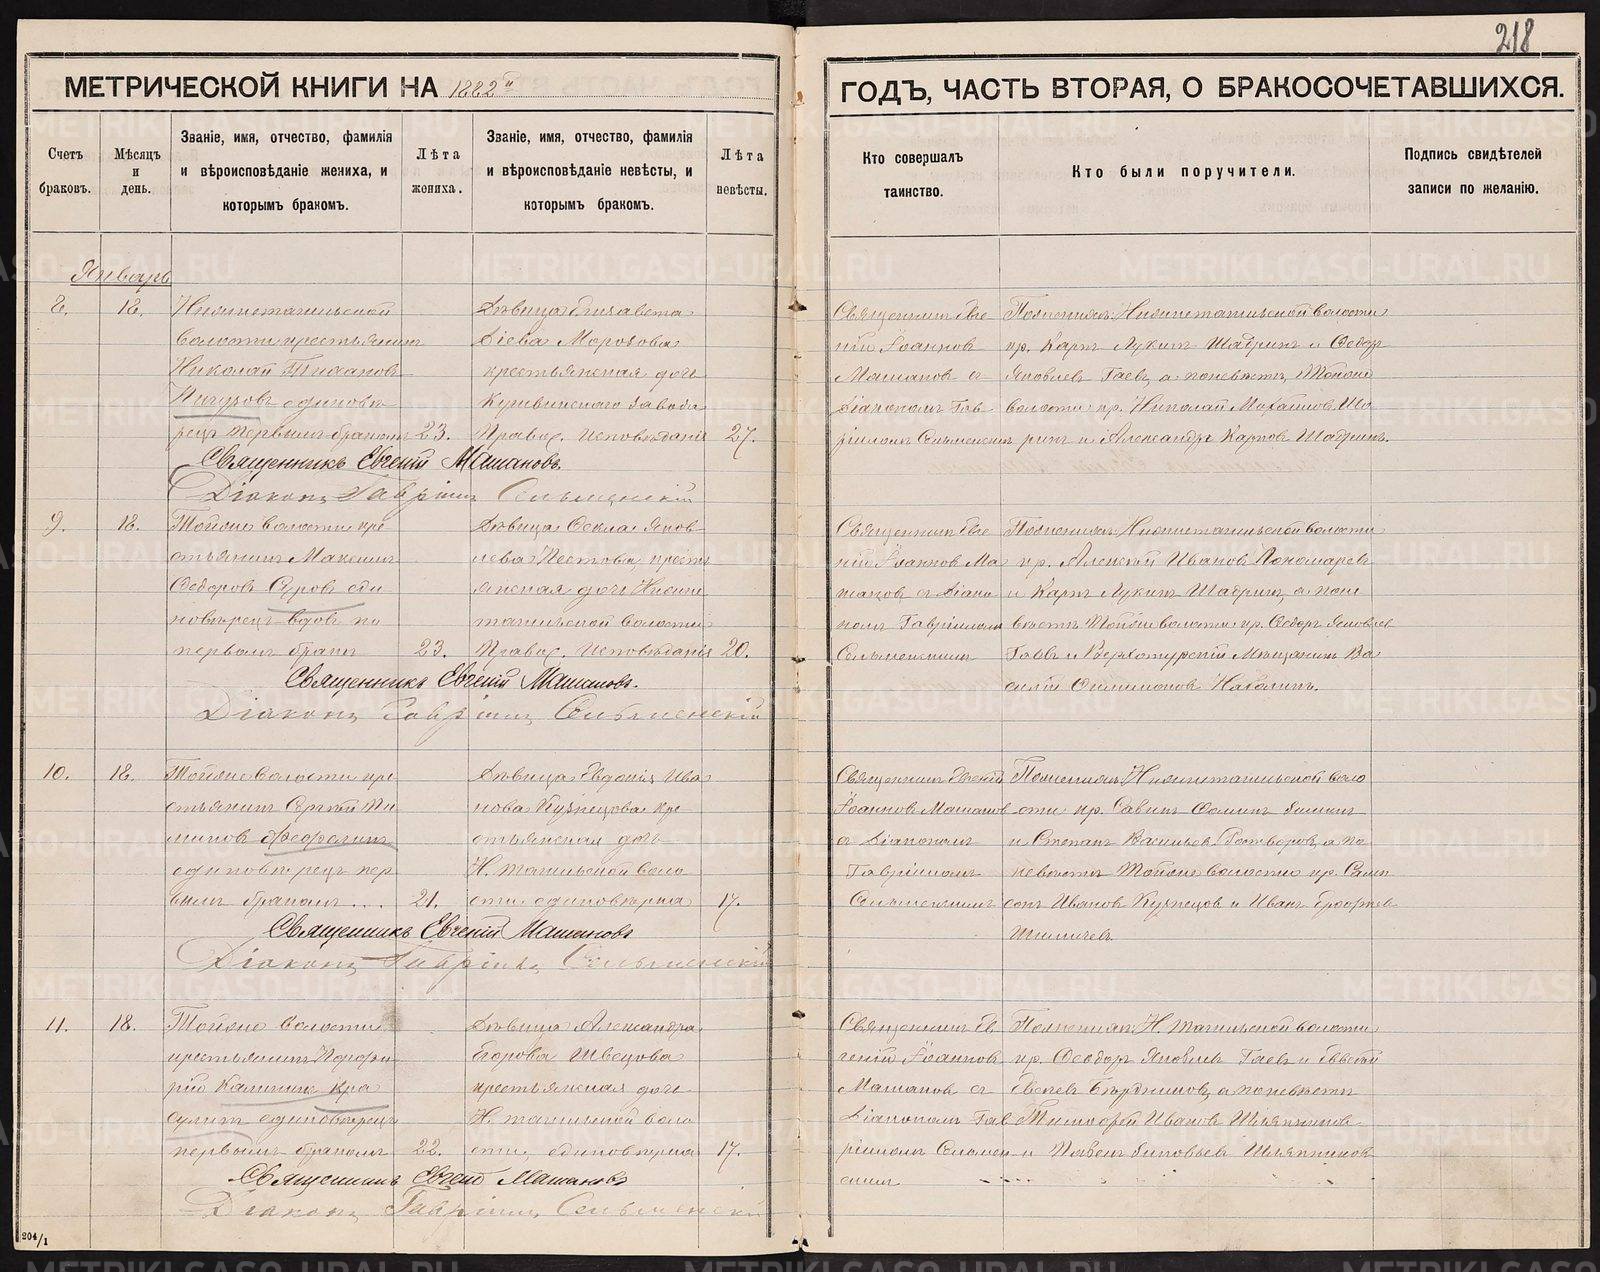 218
МЕТРИЧЕСКОЙ КНИГИ НА 1882й
ГОДЪ, ЧАСТЬ ВТОРАЯ, О БРАКОСОЧЕТАВШИХСЯ.
Счетъ браковъ.
Мѣсяцъ и день.
Званіе, имя, отчество, фамилія
и вѣроисповѣданіе жениха, и
которымъ бракомъ.
Лѣта жениха.
Званіе, имя, отчество, фамилія
и вѣроисповѣданіе невѣсты, и
которымъ бракомъ.
Лѣта невѣсты.
Кто совершалъ
таинство.
Кто были поручители.
Подпись свидѣтелей
записи по желанію.
Январь
8. 18.
Нижнетагильской
волости крестьянинъ
Николай
единовѣ
рецъ первымъ бракомъ 23.
Дѣвица Елизавета
Діева Морозова
крестьянская дочь
Кушвинского завода
Правос. исповѣданія 27.
Священникъ Евге
ній Іоанновъ
Машановъ съ
Діакономъ Гав
ріиломъ Сельменскимъ
По женихѣ: Нижнетагильской волости
кр. Карпъ Лукинъ Шадринъ и Ѳедоръ
Яковлевъ Гаевъ, а по невѣстѣ, Тойже
волости кр. Николай
и Александръ Карповъ Шадринъ.
Священникъ Евгеній Машановъ.
Діаконъ Гавріилъ Сельменскій
9. 18.
Тойже волости кре
стьянинъ Максимъ
Ѳедоровъ еди
новѣрецъ вдовъ по
первомъ бракѣ 23.
Дѣвица Ѳекла Яков
лева Пестова, кресть
янская дочь Нижне
тагильской волости
Правос. исповѣданія 20.
Священникъ Евге
ній Іоанновъ Ма
шановъ съ Діако
номъ Гавріиломъ
Сельменскимъ
По женихѣ: Нижнетагильской волости
кр. Алексѣй Ивановъ Пономаревъ
и Карпъ Лукинъ Шадринъ, а по не
вѣстѣ Тойже волости кр. Ѳедоръ Яковлев
Гаевъ и Верхотурскій Мѣщанинъ Ва
силій
Священникъ Евгеній Машановъ.
Діаконъ Гавріилъ Сельменскій
10. 18.
Тойже волости кре
стьянинъ Сергѣй
единовѣрецъ пер
вымъ бракомъ ... 21.
Дѣвица Евдокія Ива
нова Кузнецова кре
стьянская дочь
Н. тагильской воло
сти единовѣрка 17.
Священникъ Евгеній
Іоанновъ Машановъ
съ Діакономъ
Гавріиломъ
Сельменскимъ
По женихѣ: Нижнетагильской воло
сти кр. Савинъ
и Степанъ Васильев. а по
невѣстѣ Тойже волости кр. Самп
сонъ Ивановъ Кузнецовъ и Иванъ
Священникъ Евгеній Машановъ
Діаконъ Гавріилъ Сельменскій
11. 18.
Тойже волости
крестьянинъ Порфи
рій Калининъ Кра
сулинъ единовѣрецъ
первымъ бракомъ 22.
Дѣвица Александра
Егорова Швецова
крестьянская дочь
Н. тагильской воло
сти, единовѣрка 17.
Священникъ Ев
геній Іоанновъ
Машановъ съ
Діакономъ Гав
ріиломъ Сельмен
скимъ
По женихѣ: Н. Тагильской волости
кр. Ѳеодоръ Яковлевъ Гаевъ и
а по невѣстѣ
Тимофей Ивановъ Шляпниковъ
и Павелъ Зиновьевъ Шляпниковъ
Священникъ Евгеній Машановъ
Діаконъ Гавріилъ Сельменскій
204/1
METRIKI.GASO-URAL.RU